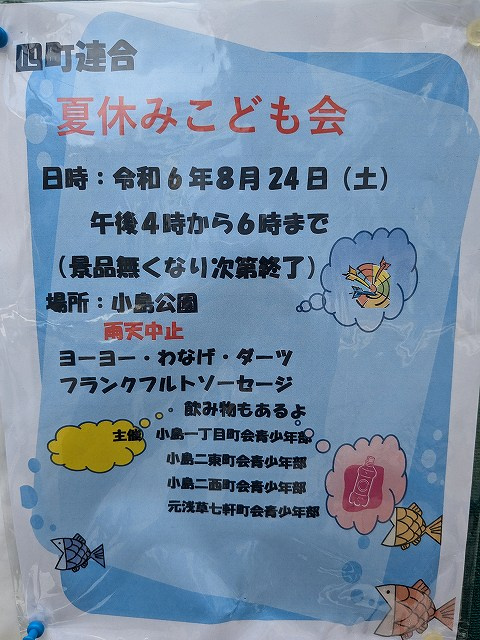 四町連合
夏休みこども会
日時：令和6年8月24日（土）
午後4時から6時まで
（景品無くなり次第終了）
場所：小島公園
雨天中止
ヨーヨー・わなげ・ダーツ
フランクフルトソーセージ
飲み物もあるよ
主催 小島一丁目町会青少年部
小島二東町会青少年部
小島二西町会青少年部
元浅草七軒町会青少年部